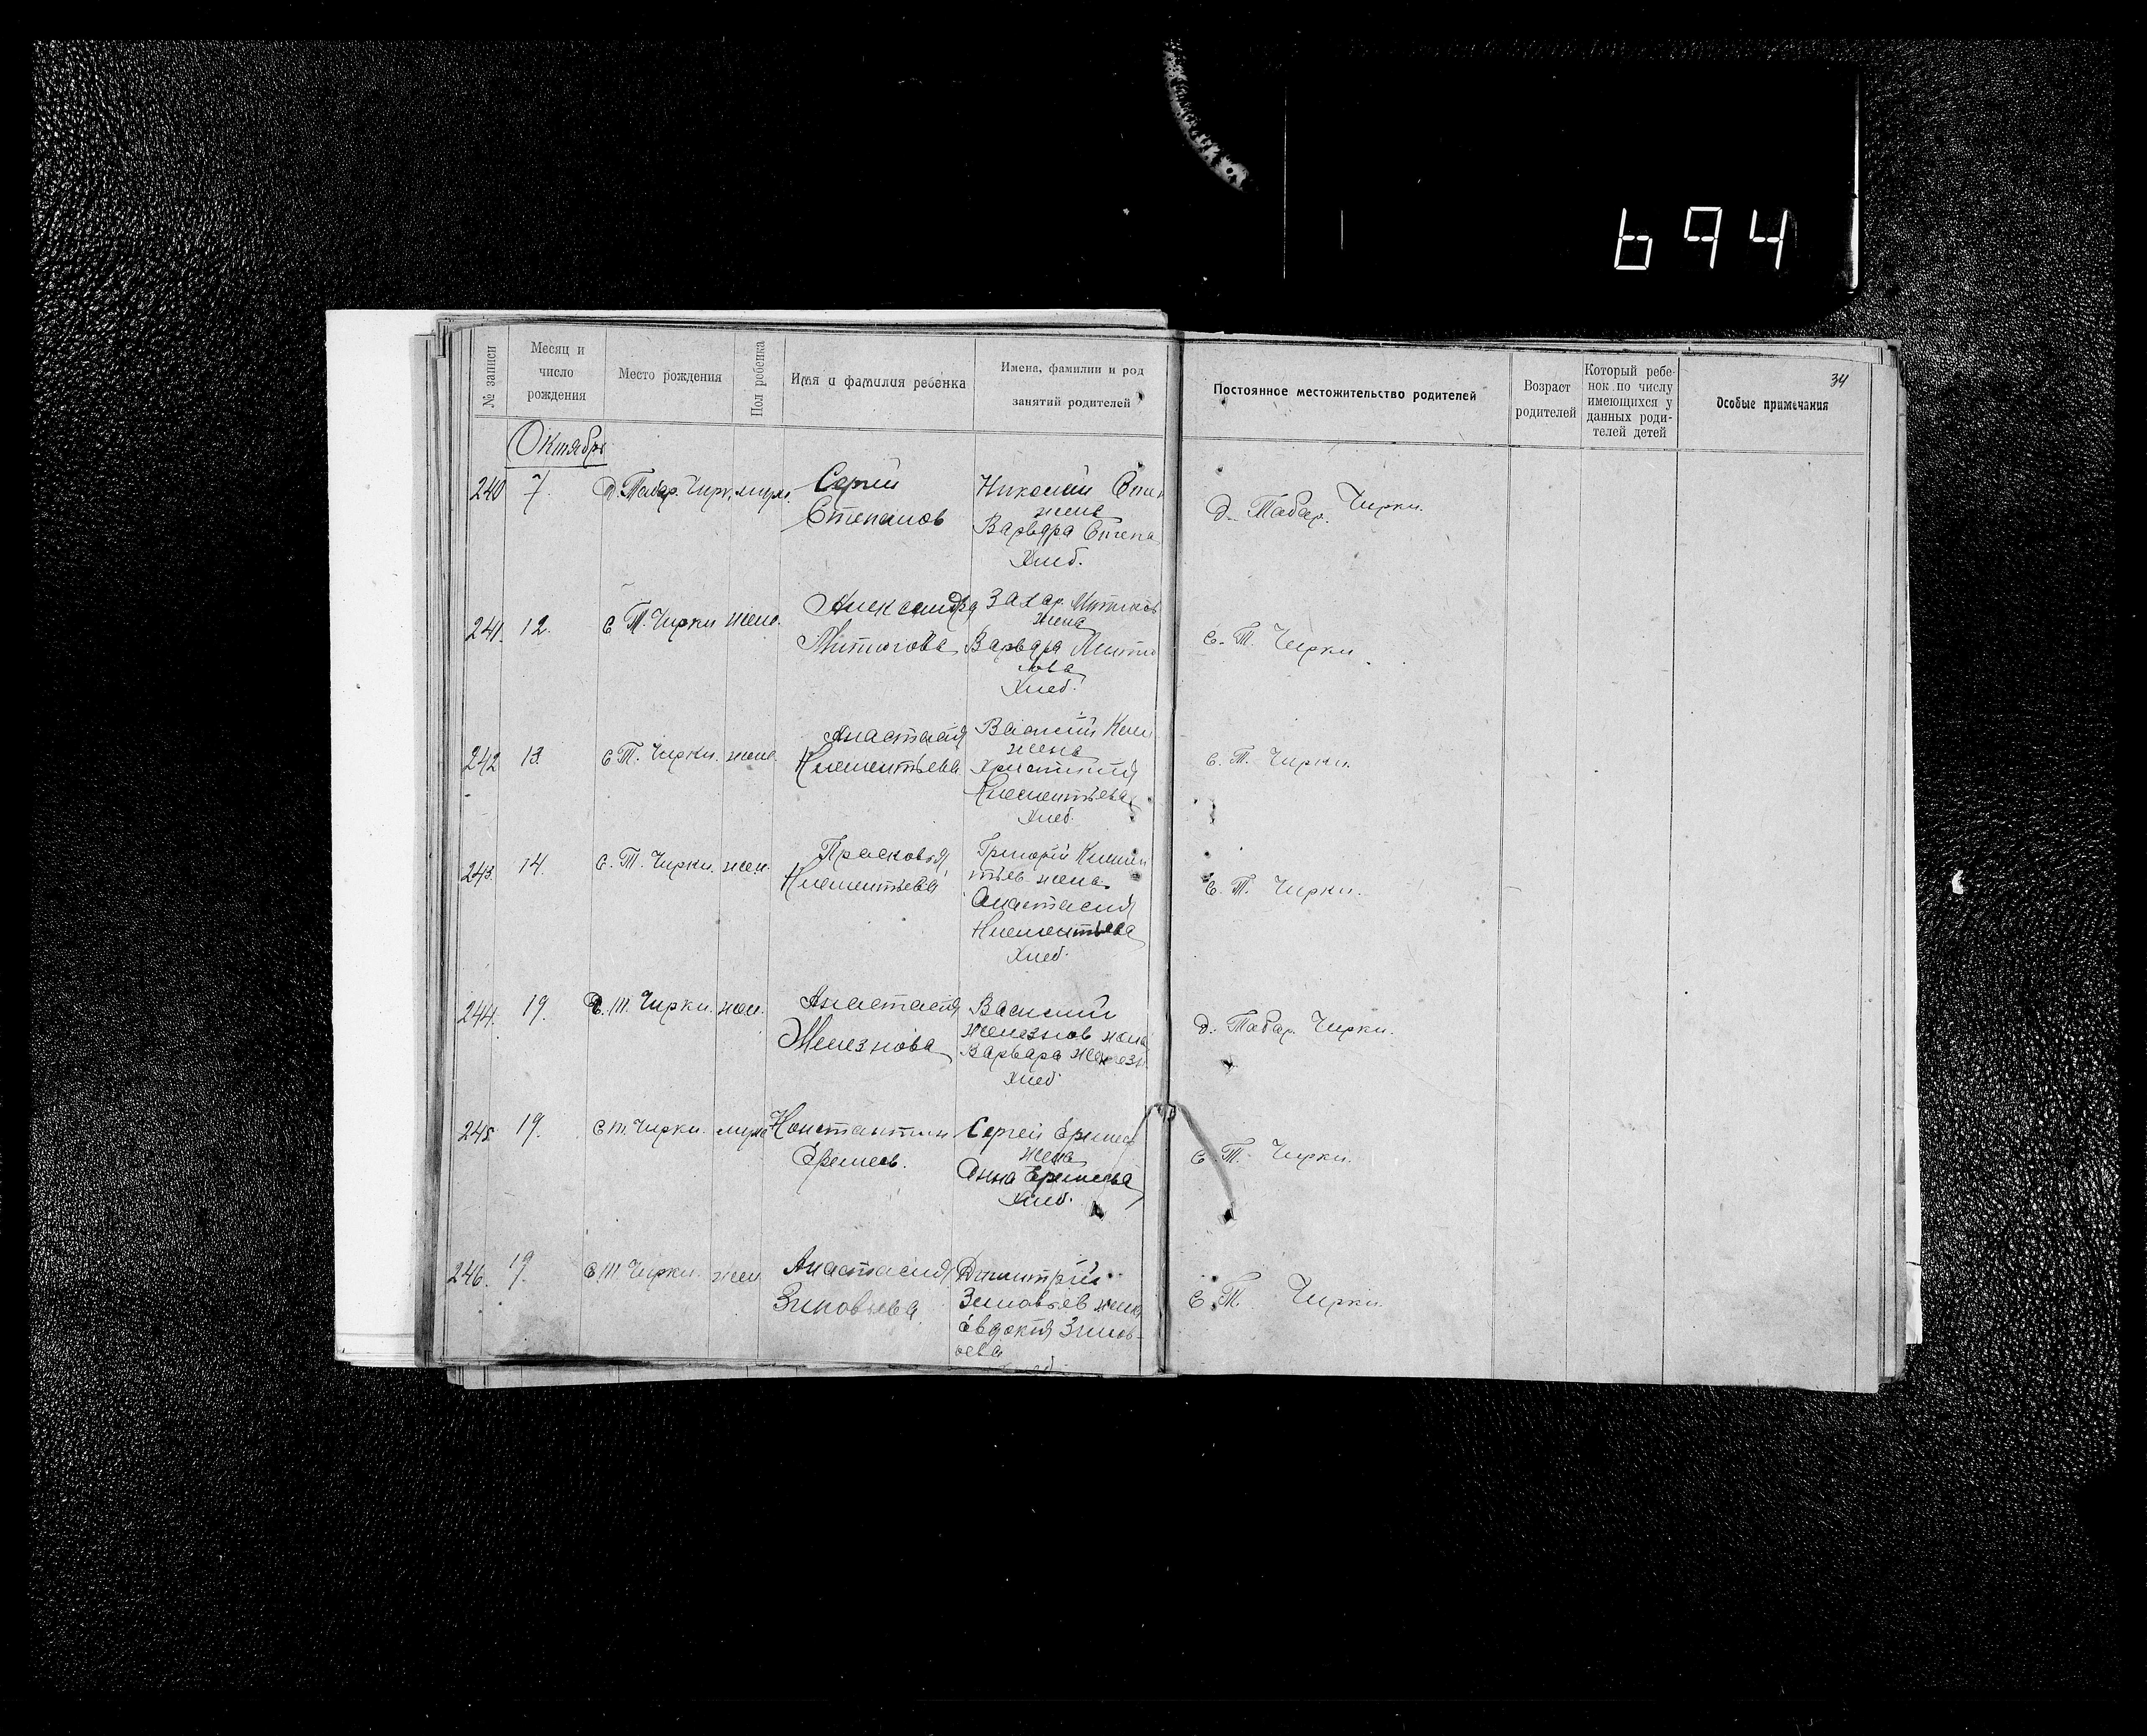 694
34
№ записи
Месяц и число рождения
Место рождения
Пол ребенка
Имя и фамилия ребенка
Имена, фамилии и род занятий родителей
Постоянное местожительство родителей
Возраст родителей
Который ребе-
нок по числу
имеющихся у
данных роди-
телей детей
Особые примечания
Октябрь
240 7. Д. Табар. Чирк. муж. Сергѣй Николай Степ
жена
Степанов Варвара Степа
Хлеб.
д. Табар. Чирки.
241. 12. С Т. Чирки жен. Александра Захар. Митюков
жена
Митюгова Варвара Митю
гова
Хлеб.
С. Т. Чирки.
242 13. С Т. Чирки. жен. Анастасия Василий Клем
жена
Клементьева Христиния
Клементьева
Хлеб.
С. Т. Чирки.
243. 14. С. Т. Чирки. жен. Прасковья Григорий Клемен
Клементьева тьев жена
Анастасия
Клементьева
Хлеб.
С. Т. Чирки.
244. 19. Д. Т. Чирки. жен. Анастасия Василий
Железнова Железнов жена
Варвара Железн
Хлеб
д. Табар. Чирки.
245 19. С Т. Чирки. муж Константин Сергей Еремеев
жена
Еремеев. Анна Еремеева
Хлеб.
С. Т. Чирки.
246. 19. С Т Чирки. жен Анастасия Димитрий
Зиновьева. Зиновьев жена
Евдокия Зинов-
ьева
С. Т. Чирки.